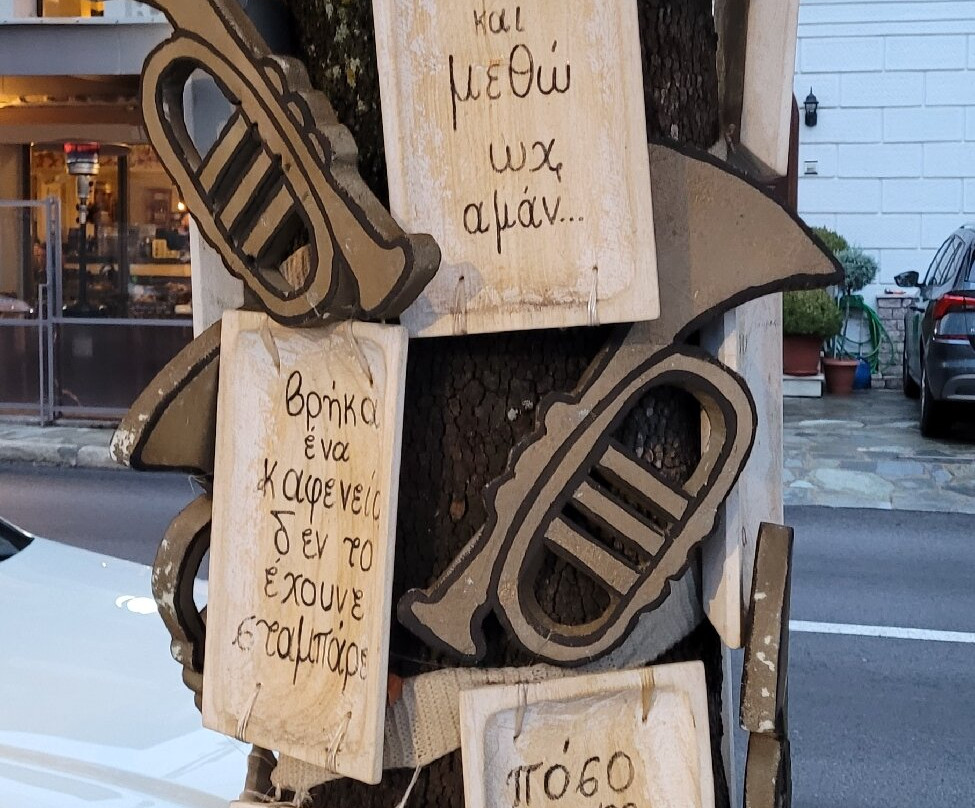 και
μεθώ
ωχ
αμάν...
βρήκα
ένα
καφενείο
δεν το
έχουνε
σταμπάρει
πόσο